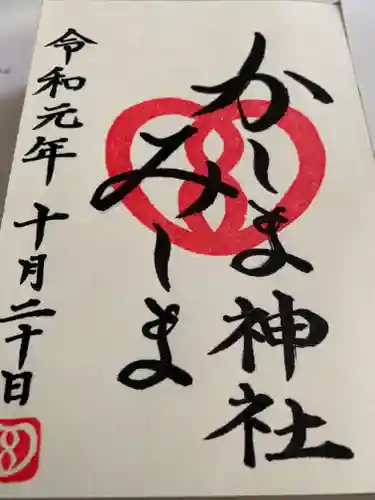 かしま神社
みしま
令和元年十月二十日